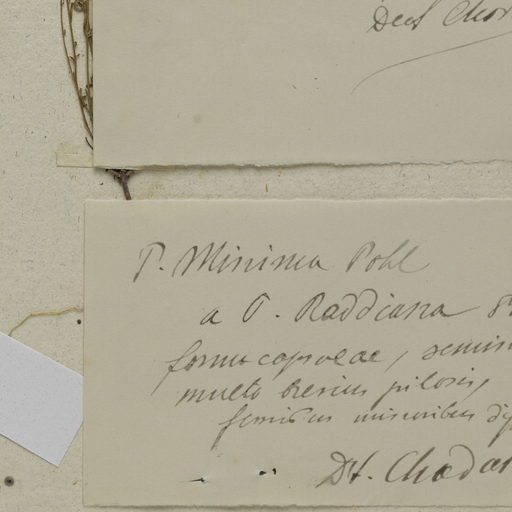 Det Chod
P. Minima Pohl
a P. Raddiana
forma capsulae, semin
multo brevius pilosis,
foliis minoribus
Dr. Chodat